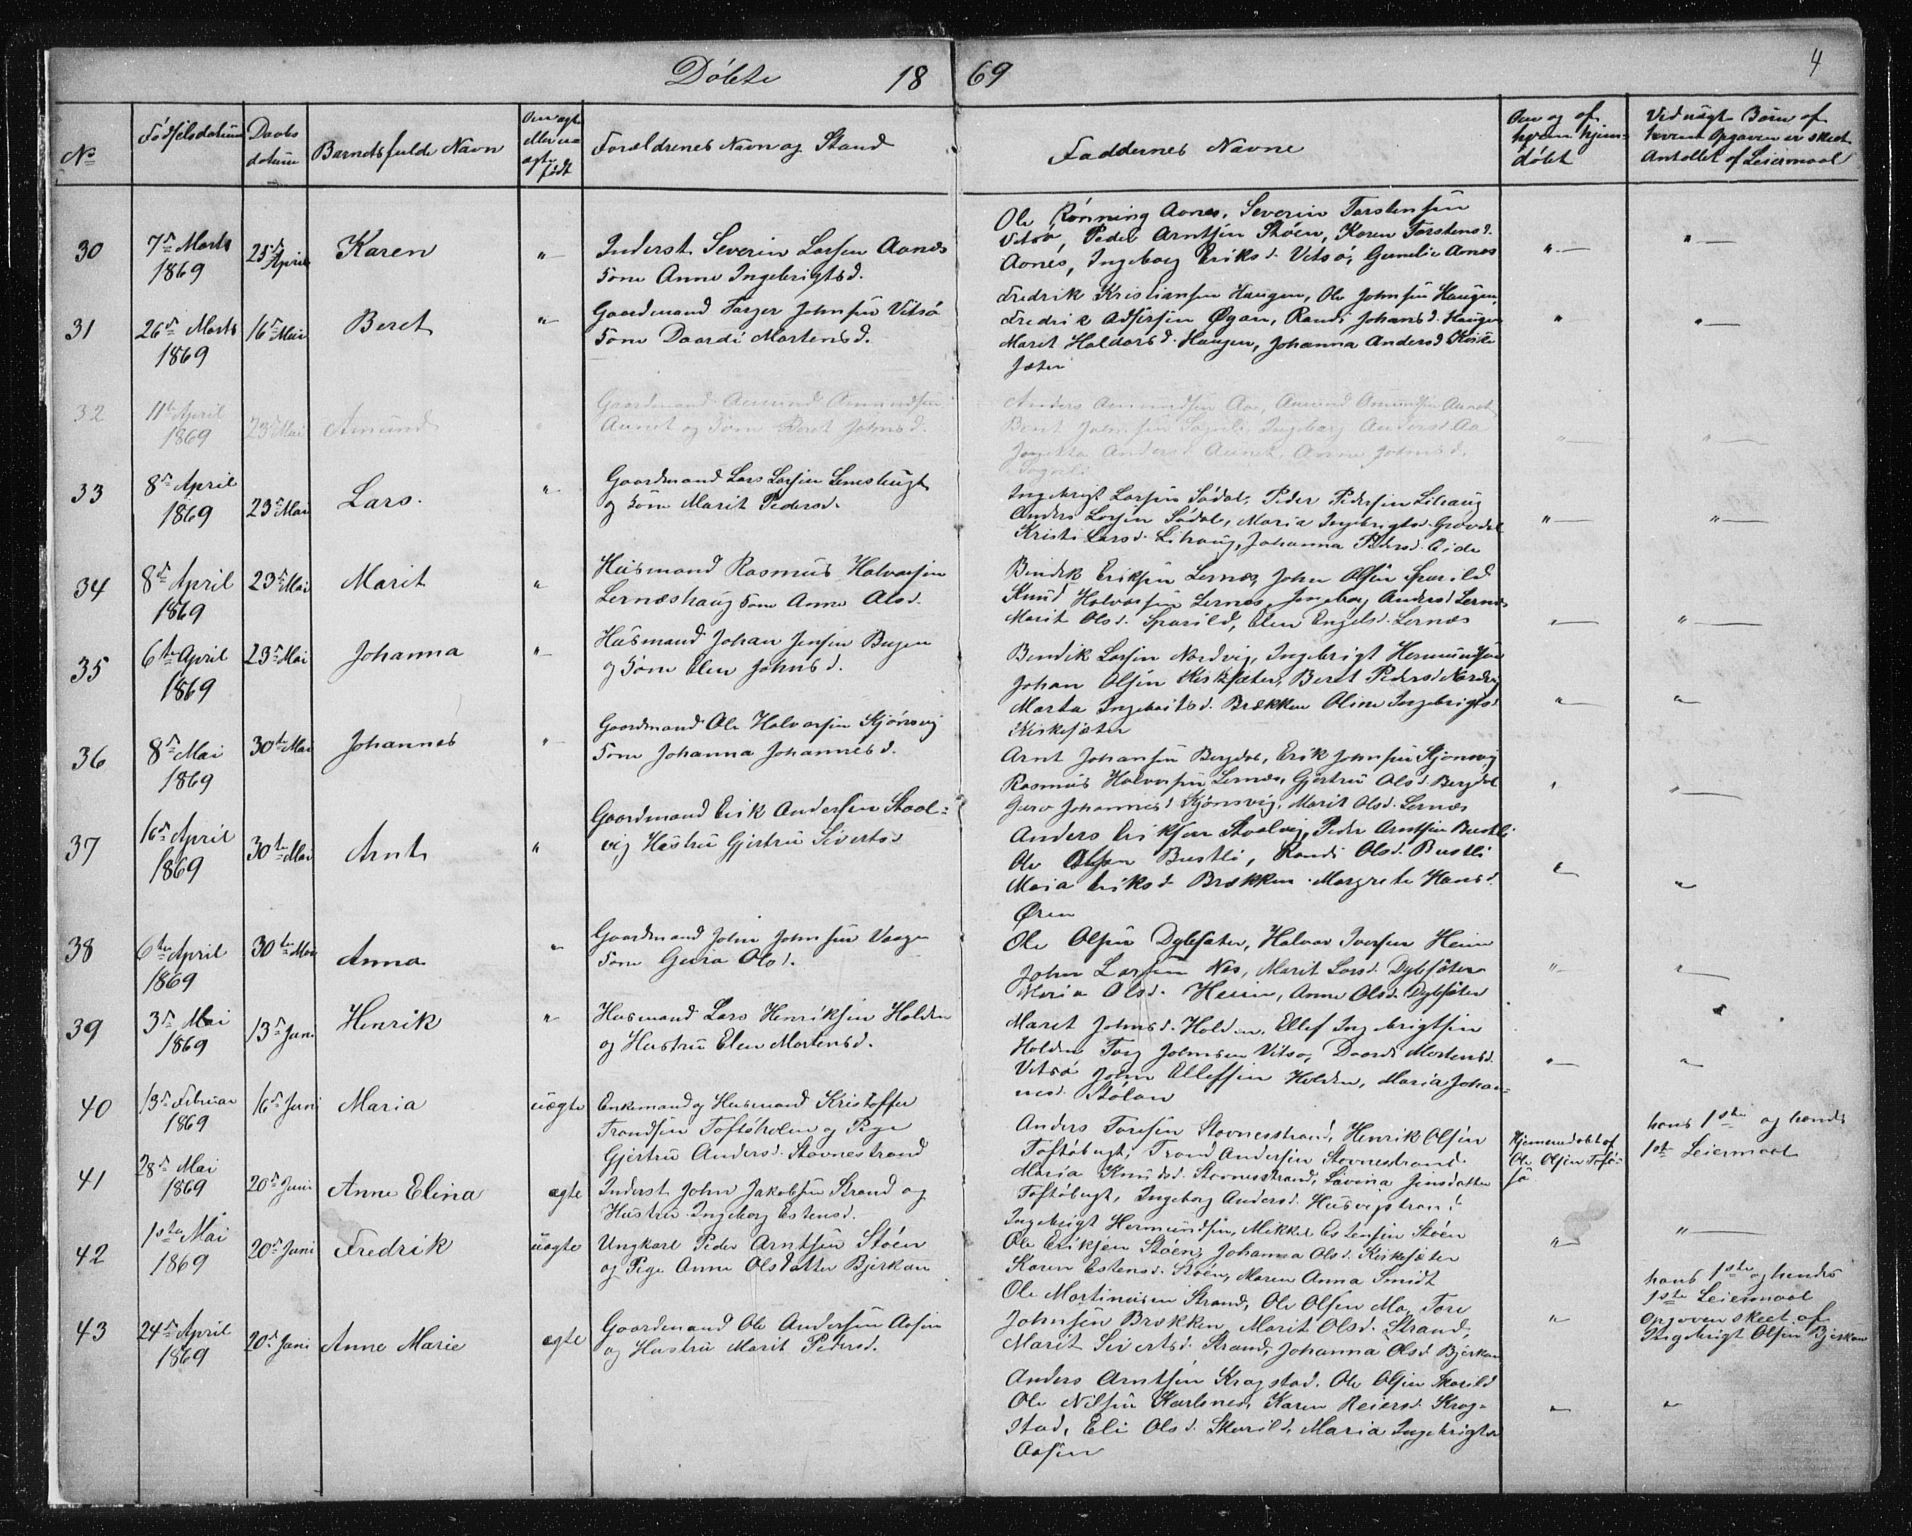 Döbte 18 69 4
No
Födselsdatum
Daabs datum
Barnets fulde Navn
Om ægte eller uægte födt
Forældrenes Navn og Stand
Faddernes Navne
Om og af hvem hjemdöbt
Ved uægt. Börn af hvem Opgaven er skeet Antallet af Leiermaal
30 7de Marts 1869 25de April Karen "
Inderst Severin Larsen Aanes
Kone Anne Ingebrigtsd.
Ole Rønning Aanes, Severin Torstensen
Vitsö, Peder Arntsen Støen, Karen Torstensd.
Aanes, Ingeborg Eriksd. Vitsö, Gunelie Aanes
" "
31 26de Marts 1869 16de Mai Beret "
Gaardmand Torger Johnsen Vitsö
Kone Daardi Mortensd.
Fredrik Kristiansen Haugen, Ole Johnsen Haugen
Fredrik Øyan, Randi Johansd. Haugen
Marit Haldorsd. Haugen, Johanna Andersd Kirke
sæter
" "
32 11te April 1869 23de Mai Amund "
Gaardmand Amund Amundsen
Aunet og Kone Beret Johnsd.
Anders Amundsen Aae, Amund Amundsen Aunet
Berit Johnsen Ingeborg Andersd. Aa
Andersd. Aunet, Anne Johnsd.
" "
33 8de April 1869 23de Mai Lars. "
Gaardmand Lars Larsen
og Kone Marit Pedersd.
Ingebrigt Larsen Södal, Peder Pedersen Lihaug
Anders Larsen Södal, Maria Ingebrigtsd.
Kristi Larsd. Lihaug, Johanna Pedersd. Eide
" "
34 8de April 1869 23de Mai Marit "
Husmand Rasmus Halvorsen
Lernæshaug Kone Anne Olsd.
Bendik Eriksen Lernæs, John Olsen Sparild
Knud Halvorsen Lernæs, Ingeborg Andersd Lernæs
Marit Olsd. Sparild, Elen Engelsd. Lernæs
" "
35 6te April 1869 23de Mai Johanna "
Husmand Johan Jensen Bugen
og Kone Elen Johnsd.
Bendik Larsen Nordvig, Ingebrigt Hermundsen
Johan Olsen Kirksæter, Beret Pedersd Nordvig
Marta Ingebritsd. Brækken Oline Ingebrigtsd
Kirkesæter
" "
36 8de Mai 1869 30te Mai Johannes "
Gaardmand Ole Halvorsen Kjönsvig
Kone Johanna Johannesd.
Arnt Johansen Bergdal, Erik Johnsen Kjönsvig
Rasmus Halvorsen Lernæs, Gjertru Olsd. Bergdal
Guru Johannesd Kjönsvig, Marit Olsd. Lernæs
" "
37 16de April 1869 30te Mai Arnt "
Gaardmand Erik Andersen Staal=
vig Hustru Gjertru Sivertsd
Anders Eriksen Staalvig, Peder Arntsen Bustli
Ole Olsen Bustli, Randi Olsd. Bustli
Maria Eriksd Brækken Margrete Hansd.
Øren
" "
38 6te April 1869 30te Mai Anna "
Gaardmand John Johnsen Vaagen
Kone Guru Olsd.
Ole Olsen Dybsæter, Halvor Iversen Heim
John Larsen Næs, Marit Larsd. Dybsæter
Maria Olsd. Heim, Anne Olsd. Dybsæter
" "
39 3de Mai 1869 13de Juni Henrik "
Husmand Lars Henriksen Holden
og Hustru Elen Mortensd.
Maret Johnsd. Holden, Ellef Ingebrigtsen
Holden Torg Johnsen Vitsö, Daardi Mortensd.
Vitsö John Ellefsen Holden, Maria Johan=
nesd. Stølan
" "
40 13de Februar 1869 16de Juni Maria uægte
Enkemand og Husmand Kristoffer
Trondsen Toftöholm og Pige
Gjertru Andersd. Stavnestrand
Anders Toresen Stavnesstrand, Henrik Olsen
Toftöbugt, Trond Andersen Stavnestrand
Maria Knudsd. Stavnesstrand, Lavina Jensdatter
Toftöbugt, Ingeborg Andersd. Husvigstrand
Hjemmedöbt af
Ole Olsen Toftö-
sö
hans 1ste og hendes
1ste Leiermaal
41 28de Mai 1869 20de Juni Anne Elina ægte
Inderst John Jakobsen Strand og
Hustru Ingeborg Estensd.
Ingebrigt Hermundsen, Mikkel Estensen Støen
Ole Eriksen Støen, Johanna Olsd. Kirkesæter
Karen Estensd. Støen, Maren Anna Smidt
" "
42 1ste Mai 1869 20de Juni Fredrik uægte
Ungkarl Peder Arntsen Støen
og Pige Anne Olsdatter Bjerkan
Ole Martinusen Strand, Ole Olsen Mo, Tore
Johnsen Brækken, Marit Olsd. Strand,
Marit Sivertsd. Strand, Johanna Olsd Bjerkan
"
hans 1ste og hendes
1ste Leiermaal
Opgaven skeet af
Ingebrigt Olsen Bjerkan
43 24de April 1869 20de Juni Anne Marie ægte
Gaardmand Ole Andersen Aasen
og Hustru Marit Pedersd.
Anders Arntsen Krogstad. Ole Olsen Skarild
Ole Nilsen Karlsnes, Karen Reiersd. Krog=
stad, Eli Olsd. Skarild, Maria Ingebrigtsd
Aasen
" "